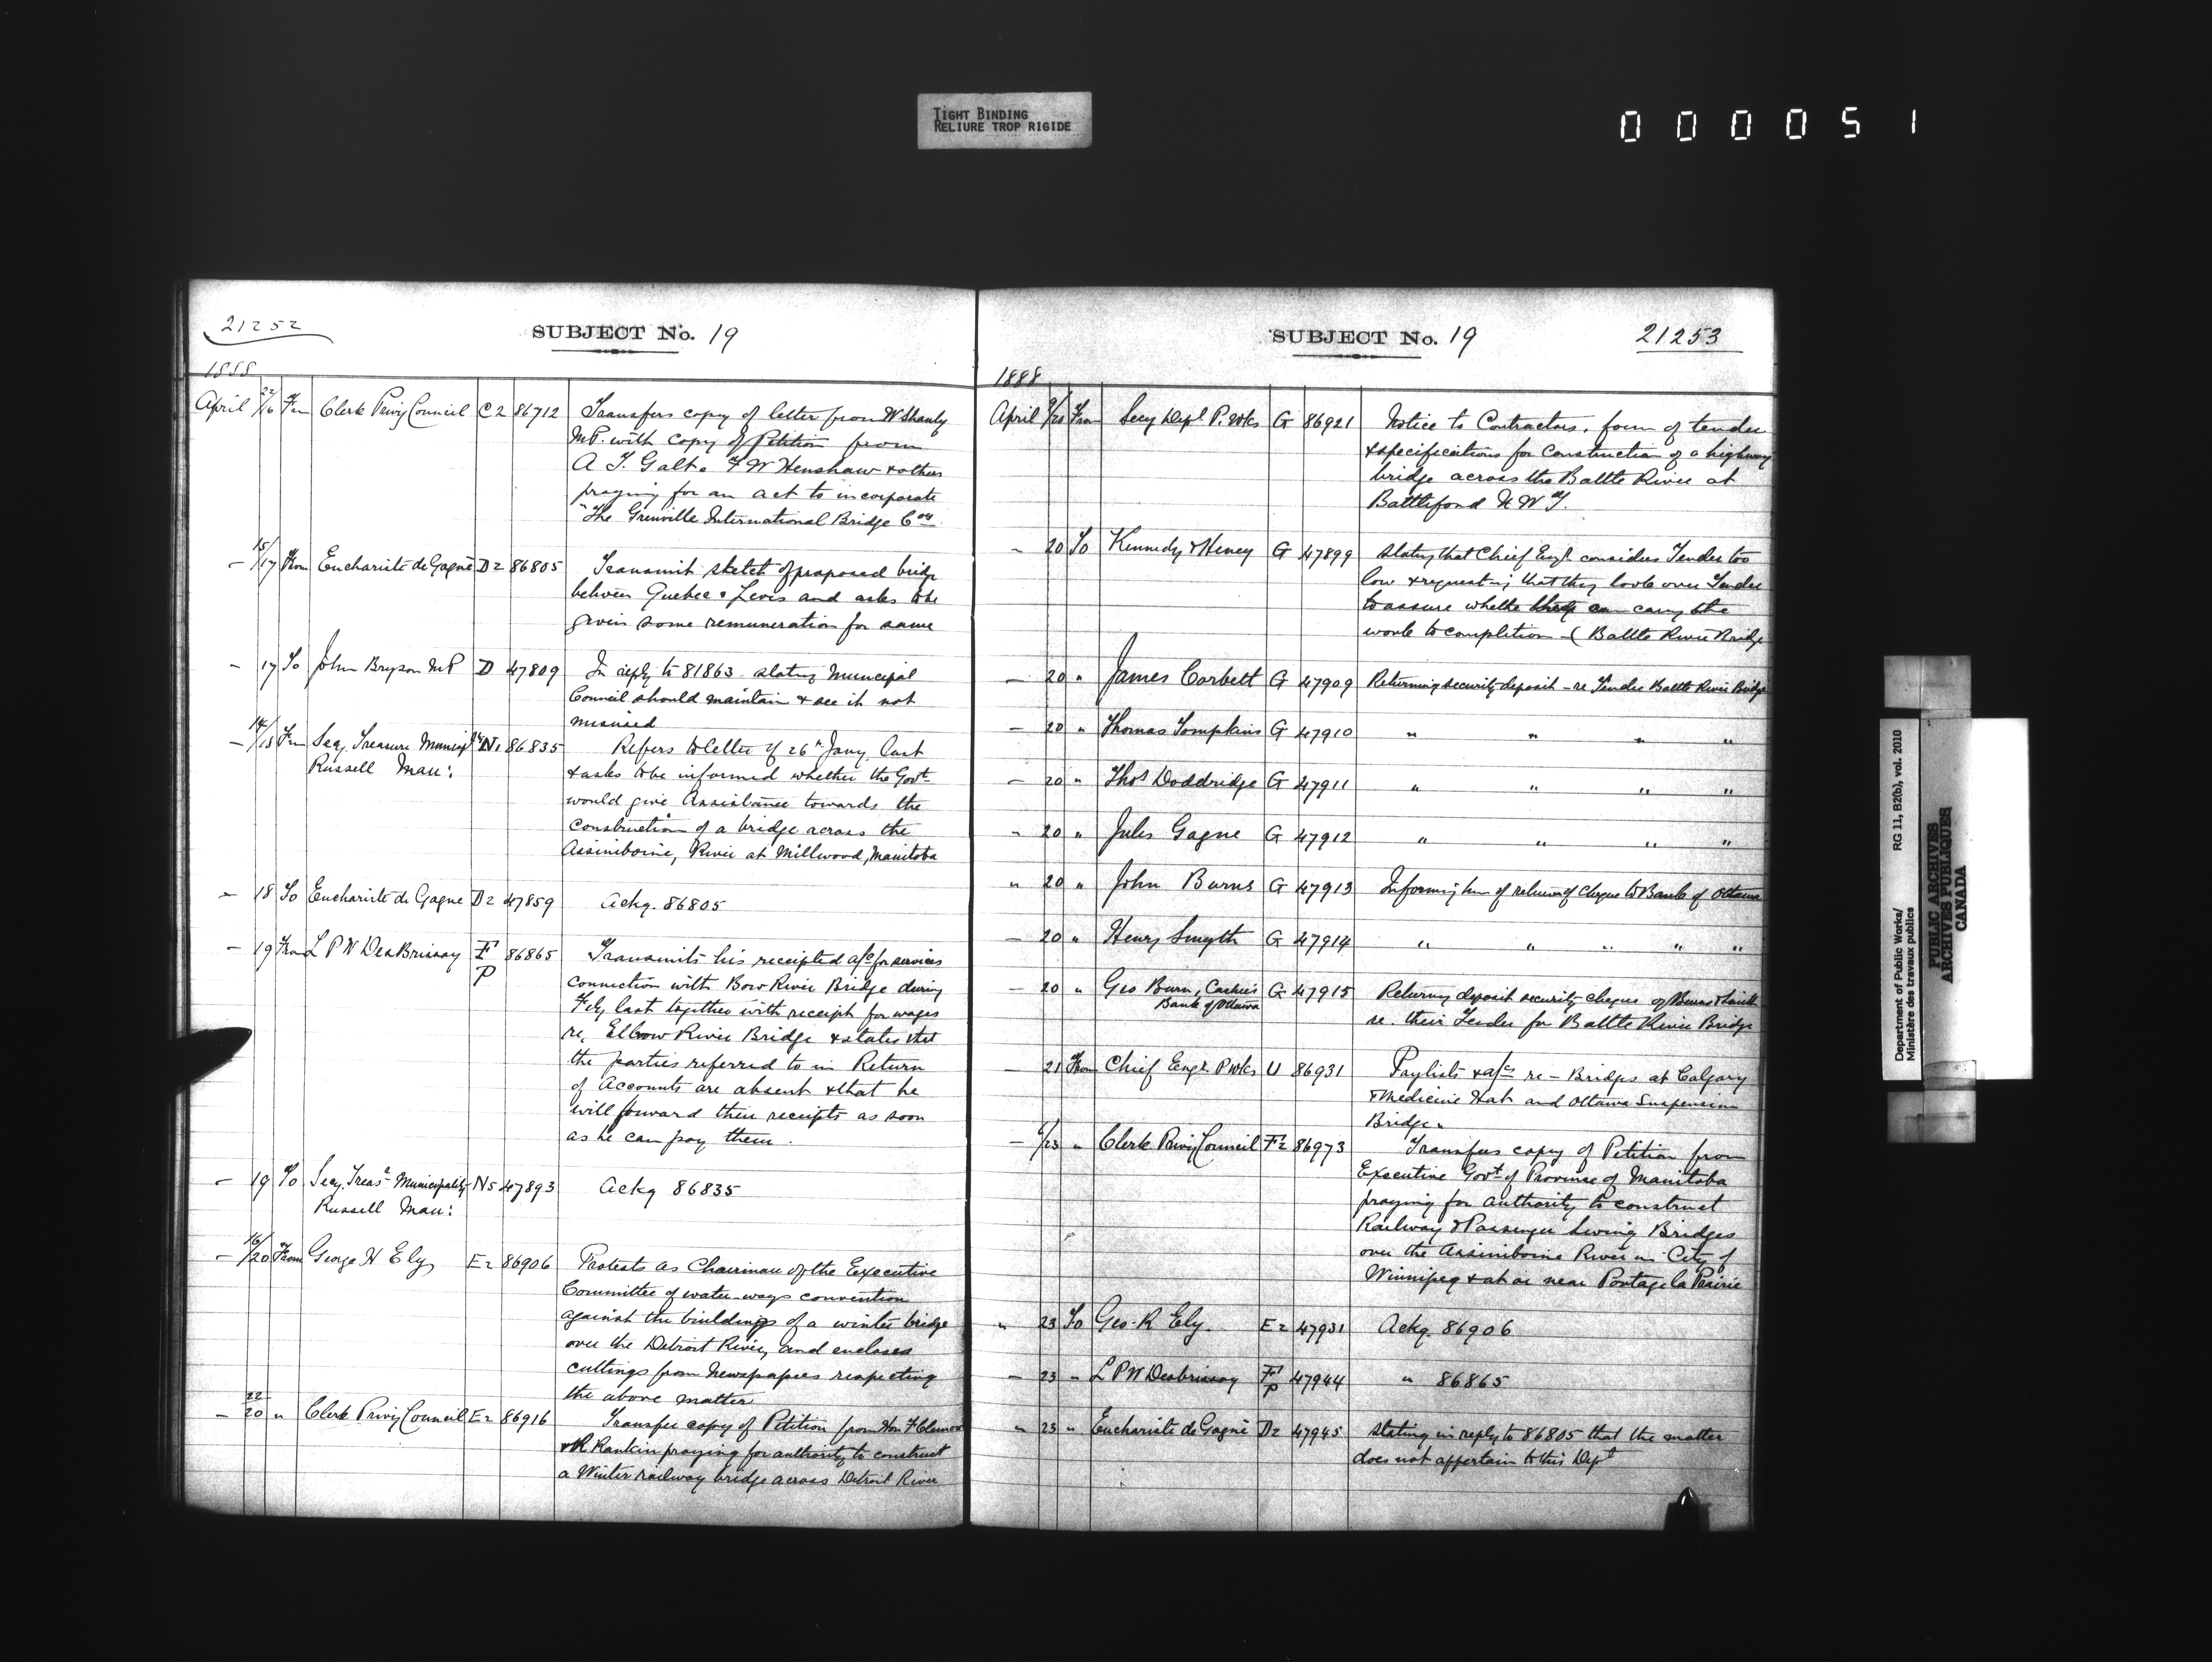 TIGHT BINDING
RELIURE TROP RIGIDE
000051
21252
SUBJECT No. 19
1888
April 22/16 Fm Clerk Privy Council C2 86712 Transfers copy of letter from W Shanly
M.P. with copy of Petition from
A T. Galt. F W Henshaw & others
praying for an act to incorporate
"The Grenville International Bridge Coy.
- 15/17 From Euchariste de Gagné D2 86805 Transmit sketch of proposed bridge
between Quebec & Levis and asks to be
given some remuneration for same
- 17 To John Bryson MP D 47809 In reply to 81863 stating Municipal
Council should maintain & see it not
misused
- 14/18 Fm Secy. Treasure Municipty N5 86835 Refers to letter of 26th Jany. last
Russell Man: & asks to be informed whether the Govt
would give Assistance towards the
construction of a bridge across the
Assiniboine, River at Millwood, Manitoba
- 18 To Euchariste de Gagne D2 47859 Ackg. 86805
- 19 From L P W DesBrisay F1 P 86865 Transmits his receipted a/c for services
connection with Bow River Bridge during
Feby last together with receipt for wages
re, Elbow River Bridge & states that
the parties referred to in Return
of Accounts are absent & that he
will forward their receipts as soon
as he can pay them.
- 19 To Secy. Treasr Municipality N5 47893 Ackg 86835
Russell Man:
- 16/20 From George H Ely E2 86906 Protests as Chairman of the Executive
Committee of water-ways convention
against the buildings of a winter bridge
over the Detroit River, and encloses
cuttings from Newspapers respecting
the above matter
- 22/20 " Clerk Privy Council E2 86916 Transfer copy of Petition from Hon F Clemow
& R Rankin praying for authority to construct
a Winter railway bridge across Detroit River
SUBJECT No. 19
21253
1888
April /20 From Secy Dept P. Wks G 86921 Notice to Contractors, form of tender
& specifications for Construction of a highway
bridge across the Battle River at
Battleford N W T.
- 20 To Kennedy & Heney G 47899 Stating that Chief Engr considers Tender too
low & requesting that they look over Tender
to assure whether they can carry the
work to completion - (Battle River Bridge
- 20 " James Corbett G 47909 Returning security deposit - re Tender Battle River Bridge
- 20 " Thomas Tompkins G 47910 " " " "
- 20 " Thos Doddridge G 47911 " " " "
" 20 " Jules Gagne G 47912 " " " "
" 20 " John Burns G 47913 Informing him of return of cheque to Bank of Ottawa
- 20 " Henry Smyth G 47914 " " " " "
- 20 " Geo Burn, Cashier G 47915 Returning deposit security cheque of Burns & Smith
Bank of Ottawa re. their Tender for Battle River Bridge
- 21 From Chief Engr. P Wks U 86931 Paylists & a/cs re - Bridges at Calgary
& Medicine Hat and Ottawa Suspension
Bridge.
- /23 " Clerk Privy Council F2 86973 Transfers copy of Petition from
Executive Govt of Province of Manitoba
praying for authority to construct
Railway & Passenger Swing Bridges
over the Assiniboine River in City of
Winnipeg & at or near Portage la Prairie
" 23 To Geo. R Ely. E2 47931 Ackg. 86906
- 23 " L P W Desbrisay F1 P 47944 " 86865
" 23 " Euchariste de Gagné D2 47945 Stating in reply to 86805 that the matter
does not appertain to this Dept
Department of Public Works/
Ministère des travaux publics
RG 11, B2(b), vol. 2010
PUBLIC ARCHIVES
ARCHIVES PUBLIQUES
CANADA